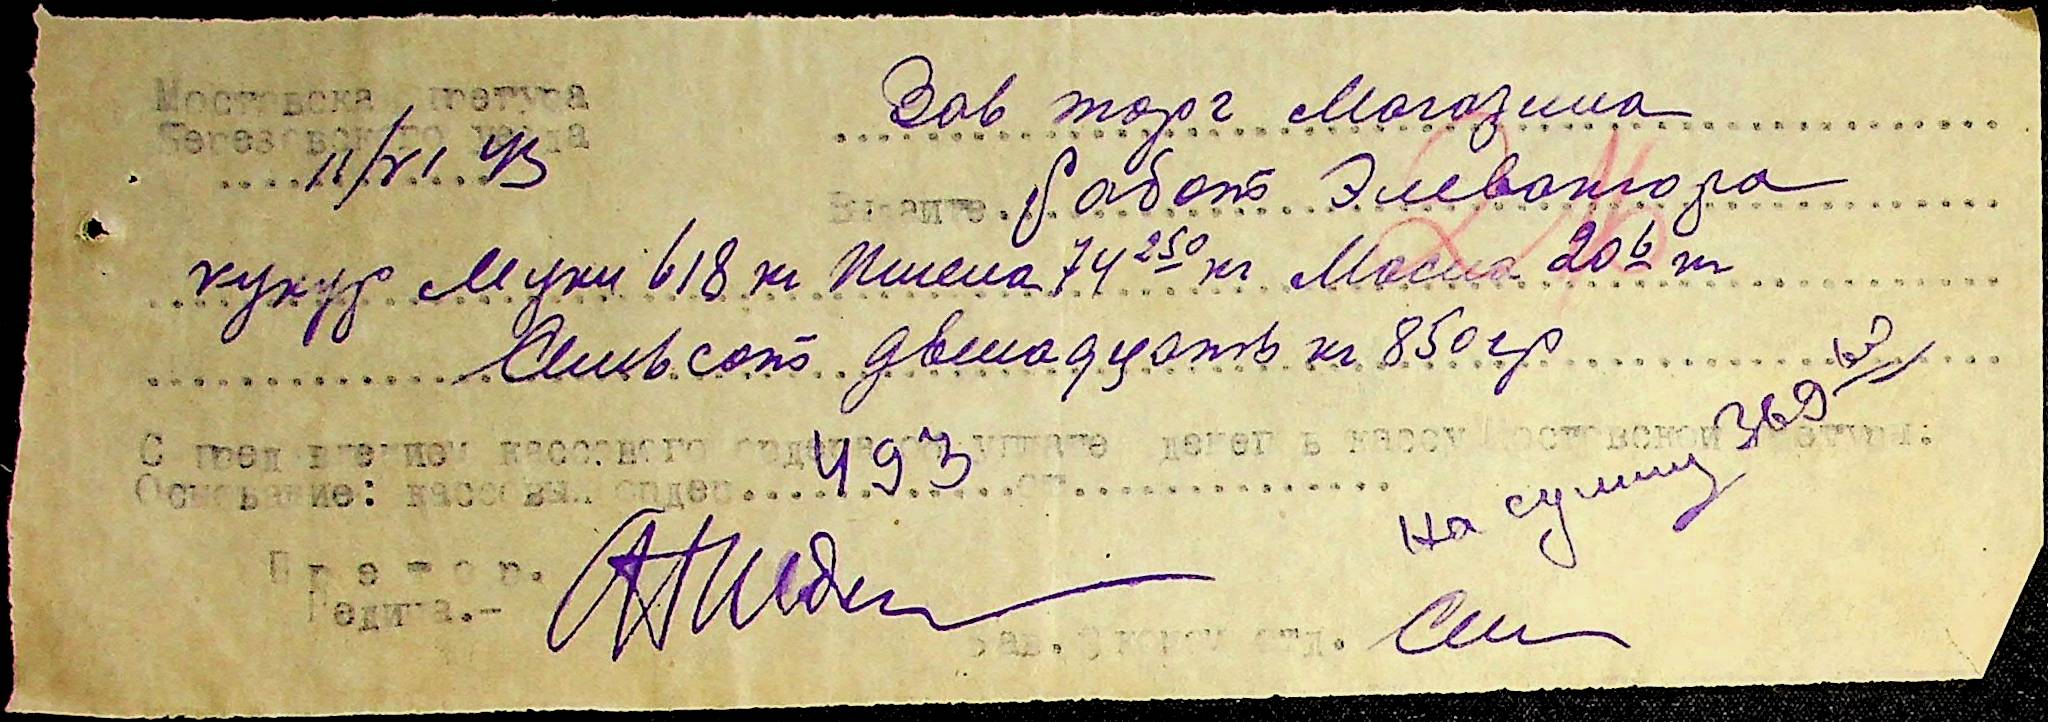 Мостовска претура
Березовского уезда
11/VI 43
Зав торг Магазина
Выдайте работ Элеватора
кукур Муки 618 кг Пшена 74 250 кг Масла 20 6 кг
Семьсот двенадцать кг 850 гр
С пред'явлением кассового ордера об уплате денег в кассу Мостовской претуры.
Основание: кассовый ордер 493 от
на сумму 369 60
Претор.
Педина.-
Зав. Эконом отд.